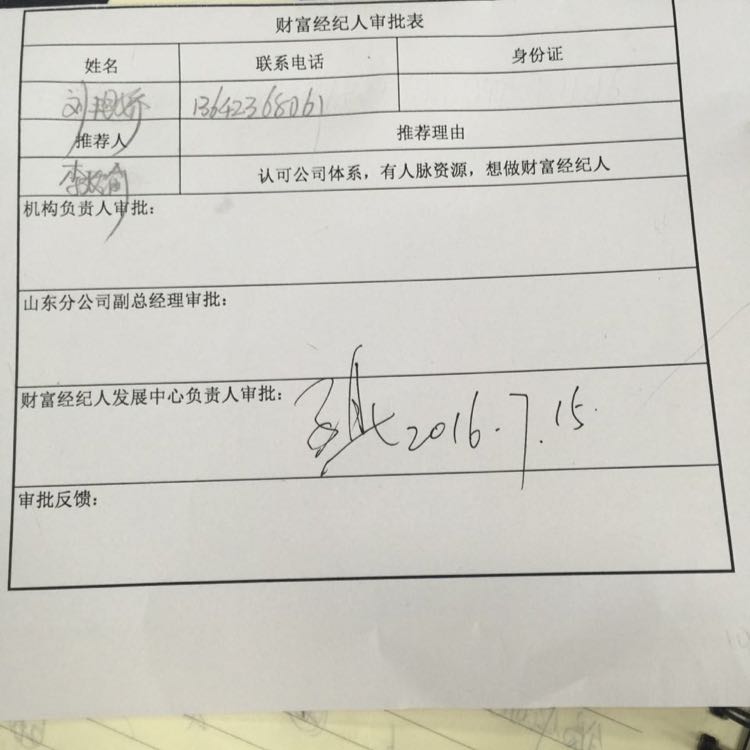 财富经纪人审批表
姓名 联系电话 身份证
刘艳娇 13642368061
推荐人 推荐理由
认可公司体系，有人脉资源，想做财富经纪人
机构负责人审批：
山东分公司副总经理审批：
财富经纪人发展中心负责人审批：
2016.7.15.
审批反馈：